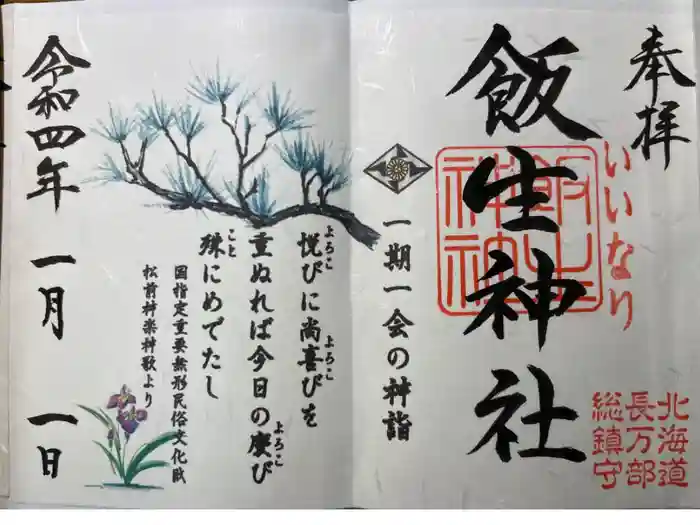 奉拝
飯生神社
飯生神社
いいなり
北海道
長万部
総鎮守
一期一会の神詣
悦びに尚喜びを
よろこ
よろこ
重ぬれば今日の慶び
よろこ
殊にめでたし
こと
国指定重要無形民俗文化財
松前神楽神歌より
令和四年 一月 一日